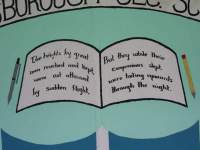 SBOROUGH SEC. SC
The heights by great
men reached and kept
were not attained
by sudden flight,
But they while their
companions slept
were toiling upwards
through the night.